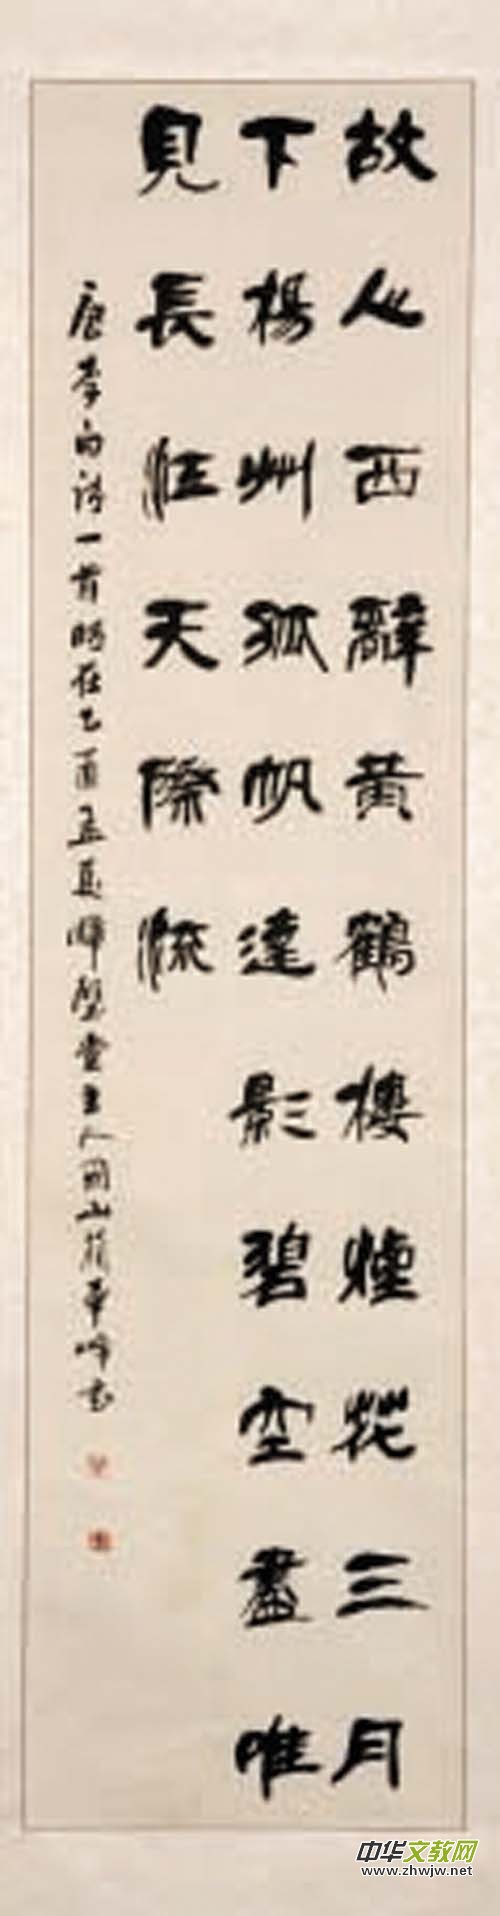 故人西辭黄鶴樓煙花三月
下楊州孤帆遠影碧空盡唯
見長江天際流
唐李白詩一首時在乙酉孟夏堂主人山華峰書
中华文教网
www.zhwjw.net